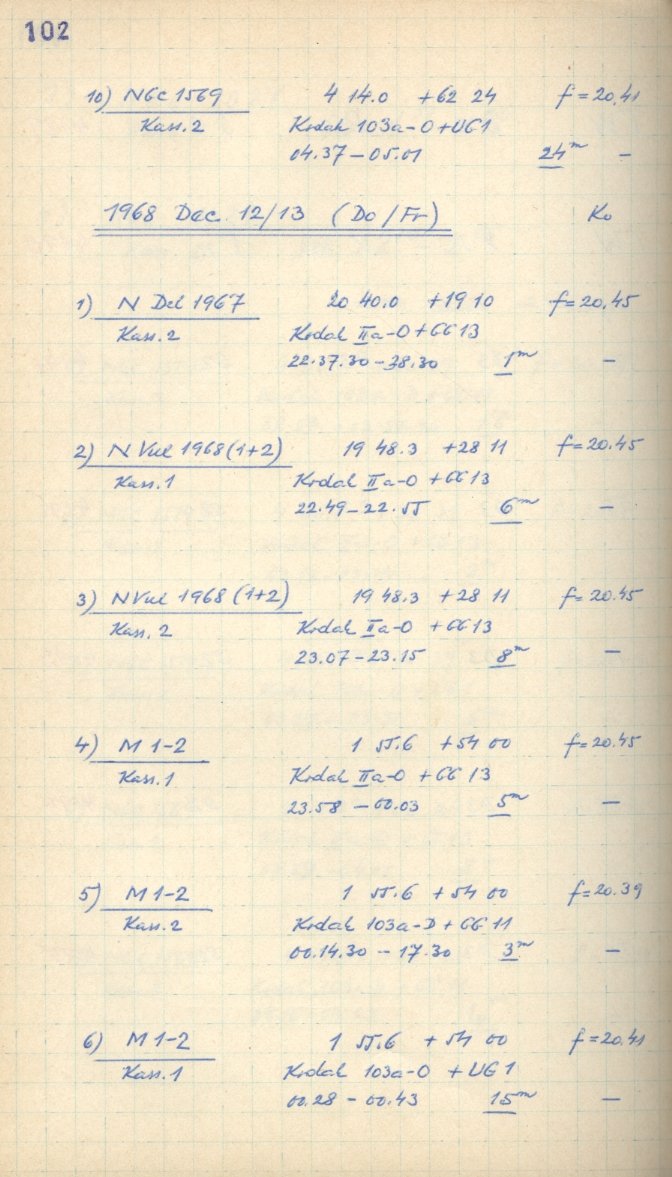 102
10) NGC 1569 4 14.0 +62 24 f = 20,41
Kass. 2 Kodak 103a-O + UG1
04.37 – 05.01 24m –
1968 Dec. 12/13 (Do/Fr) Ko
1) N Del 1967 20 40.0 +19 10 f = 20,45
Kass. 2 Kodak IIa-O + GG 13
22.37.30 – 38.30 1m –
2) N Vul 1968 (1+2) 19 48.3 +28 11 f = 20.45
Kass. 1 Kodak IIa-O + GG 13
22.49 – 22.55 6m –
3) N Vul 1968 (1+2) 19 48.3 +28 11 f = 20.45
Kass. 2 Kodak IIa-O + GG 13
23.07 – 23.15 8m –
4) M 1-2 1 55.6 +54 00 f = 20.45
Kass. 1 Kodak IIa-O + GG 13
23.58 – 00.03 5m –
5) M 1-2 1 55.6 +54 00 f = 20.39
Kass. 2 Kodak 103a-D + GG 11
00.14.30 – 17.30 3m –
6) M 1-2 1 55.6 +54 00 f = 20.41
Kass. 1 Kodak 103a-O + UG 1
00.28 – 00.43 15m –